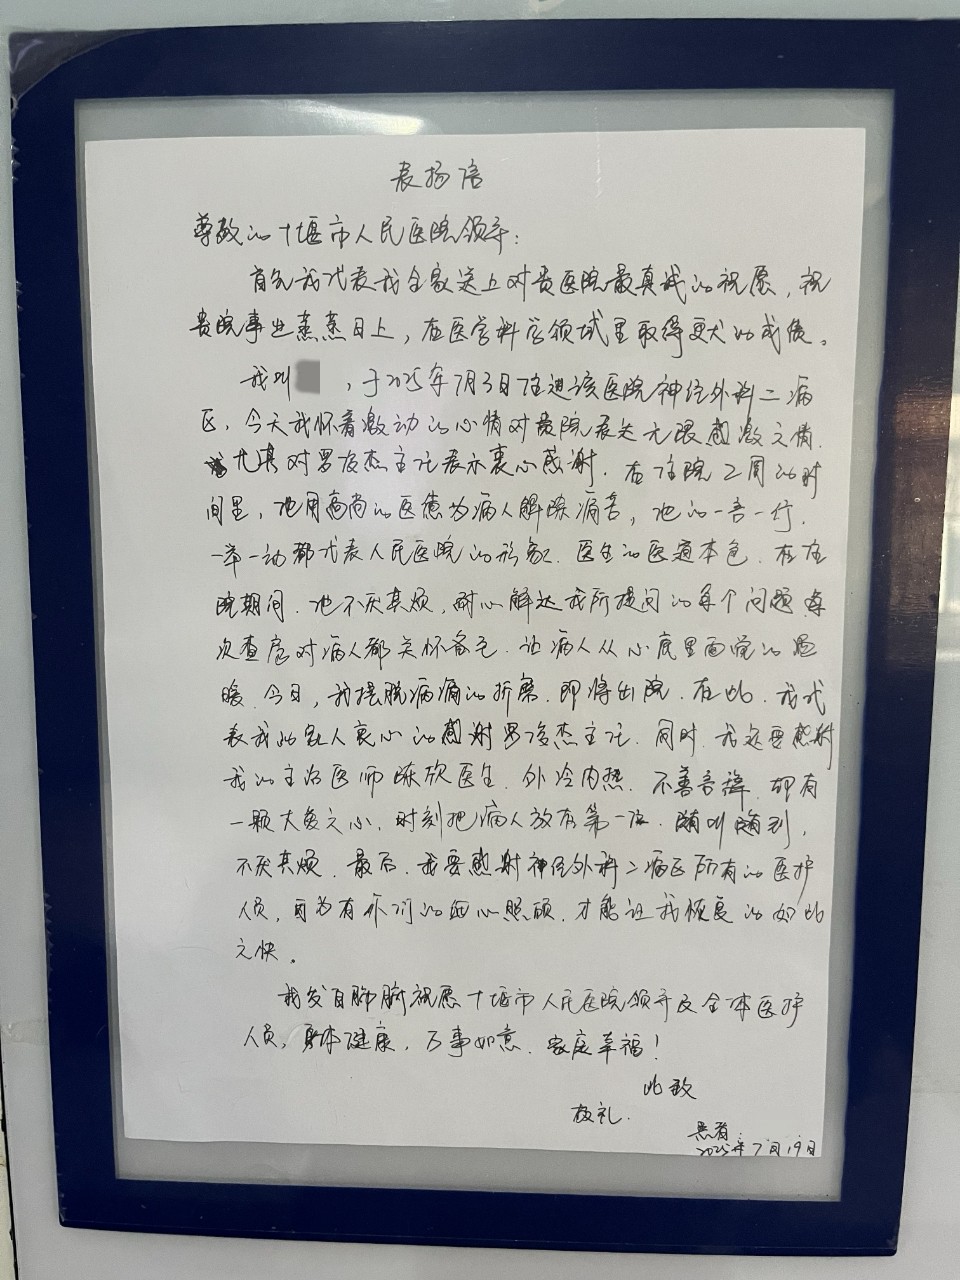 表扬信
尊敬的十堰市人民医院领导：
首先我代表我全家送上对贵医院最真诚的祝愿，祝
贵院事业蒸蒸日上，在医学科学领域里取得更大的成绩。
我叫 ，于2025年7月3日住进该医院神经外科二病
区，今天我怀着激动的心情对贵院表达无限感激之情，
尤其对罗俊杰主任表示衷心感谢．在住院2周的时
间里，他用高尚的医德为病人解除痛苦，他的一言一行．
一举一动都代表人民医院的形象．医生的医道本色．在住
院期间．他不厌其烦，耐心解达我所提问的每个问题 每
次查房对病人都关怀备至．让病人从心底里面觉的温
暖．今日，我摆脱病痛的折磨．即将出院．在此．我代
表我的家人衷心的感谢罗俊杰主任．同时．我还要感谢
我的主治医师陈欣医生．外冷内热．不善言辞．却有
一颗大爱之心．时刻把病人放在第一位．随叫随到，
不厌其烦．最后．我要感谢神经外科二病区所有的医护
人员，因为有你们的细心照顾．才能让我恢复的如此
之快。
我发自肺腑祝愿十堰市人民医院领导及全体医护
人员，身体健康，万事如意．家庭幸福！
此致
敬礼．
患者：
2025年7月19日